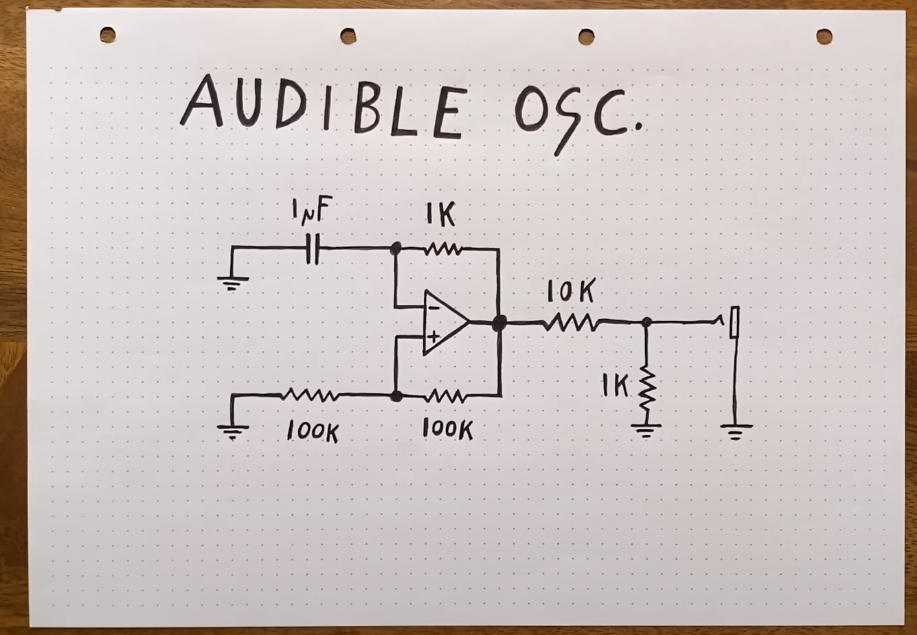 AUDIBLE OSC.
1NF
1K
10K
- 
+
1K
100K
100K